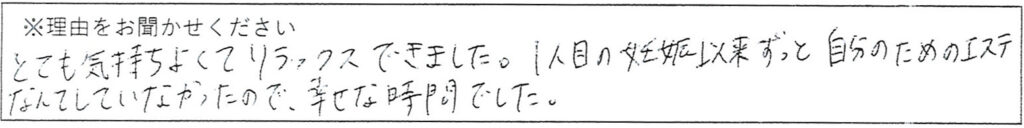 ※理由をお聞かせください
とても気持ちよくてリラックスできました。1人目の妊娠以来ずっと自分のためのエステ
なんてしていなかったので、幸せな時間でした。